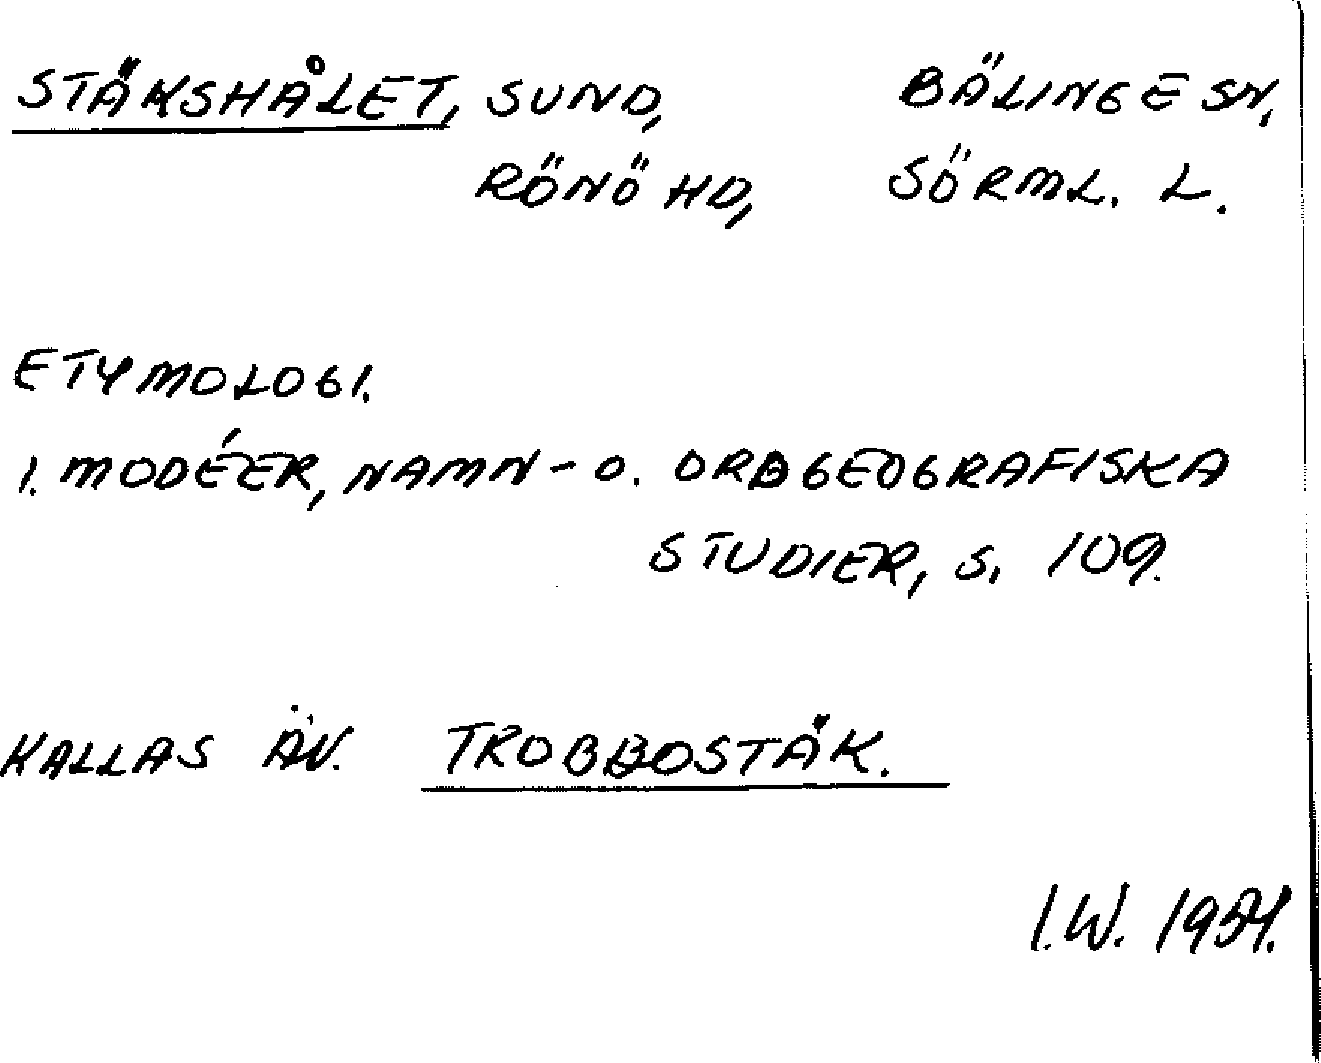 STÄKSHÅLET, SUND, BÄLINGE SN,
RÖNÖ HD, SÖRML. L.
ETYMOLOGI.
I. MODÉER, NAMN- O. ORDGEOGRAFISKA
STUDIER, S. 109.
KALLAS ÄV. TROBBOSTÄK.
I.W. 1954.